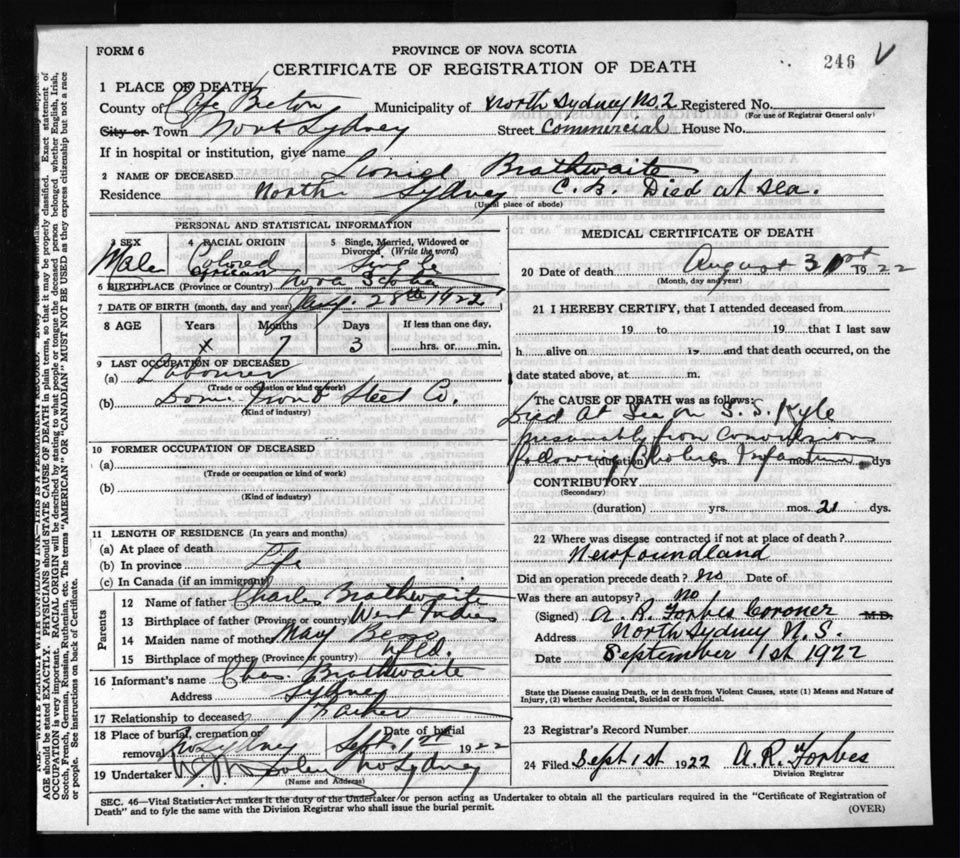 FORM 6
PROVINCE OF NOVA SCOTIA
CERTIFICATE OF REGISTRATION OF DEATH
246 V
1 PLACE OF DEATH
County of Cape Breton Municipality of North Sydney No. 2 Registered No.
(For use of Registrar General only)
City or Town North Sydney Street Commercial House No.
If in hospital or institution, give name
2 NAME OF DECEASED Lionel Brathwaite
Residence North Sydney C. B. Died at sea.
(Usual place of abode)
PERSONAL AND STATISTICAL INFORMATION
3 SEX 4 RACIAL ORIGIN 5 Single, Married, Widowed or Divorced (Write the word)
Male Colored African Single
6 BIRTHPLACE (Province or Country) Nova Scotia
7 DATE OF BIRTH (month, day and year) 28th 1922
8 AGE Years Months Days If less than one day,
x 7 3 hrs. or min.
9 LAST OCCUPATION OF DECEASED
(a) Labourer
(Trade or occupation or kind of work)
(b) Dom. Iron & Steel Co.
(Kind of industry)
10 FORMER OCCUPATION OF DECEASED
(a)
(Trade or occupation or kind of work)
(b)
(Kind of industry)
11 LENGTH OF RESIDENCE (In years and months)
(a) At place of death
(b) In province Life
(c) In Canada (if an immigrant)
Parents
12 Name of father Charles Brathwaite
13 Birthplace of father (Province or country) West Indies
14 Maiden name of mother Mary
15 Birthplace of mother (Province or country) Nfld.
16 Informant's name Chas. Brathwaite
Address Sydney
17 Relationship to deceased Father
18 Place of burial, cremation or removal No Sydney Date of burial Sept 1st 1922
19 Undertaker No Sydney
(Name and Address)
MEDICAL CERTIFICATE OF DEATH
20 Date of death August 31st 1922
(Month, day and year)
21 I HEREBY CERTIFY, that I attended deceased from
19 to 19 that I last saw
h alive on 19 and that death occurred, on the
date stated above, at m.
The CAUSE OF DEATH was as follows:
Died At Sea on S. S. Kyle
presumably from Convulsions
following Cholera Infantum
(duration) yrs. mos. dys
CONTRIBUTORY
(Secondary)
(duration) yrs. mos. 21 dys.
22 Where was disease contracted if not at place of death?
Newfoundland
Did an operation precede death? No Date of
Was there an autopsy? No
(Signed) A. R. Forbes Coroner M.D.
Address North Sydney N. S.
Date September 1st 1922
State the Disease causing Death, or in death from Violent Causes, state (1) Means and Nature of
Injury, (2) whether Accidental, Suicidal or Homicidal.
23 Registrar's Record Number
24 Filed Sept 1st 1922 A. R. Forbes
Division Registrar
SEC. 46—Vital Statistics Act makes it the duty of the Undertaker or person acting as Undertaker to obtain all the particulars required in the "Certificate of Registration of
Death" and to fyle the same with the Division Registrar who shall issue the burial permit.
(OVER)